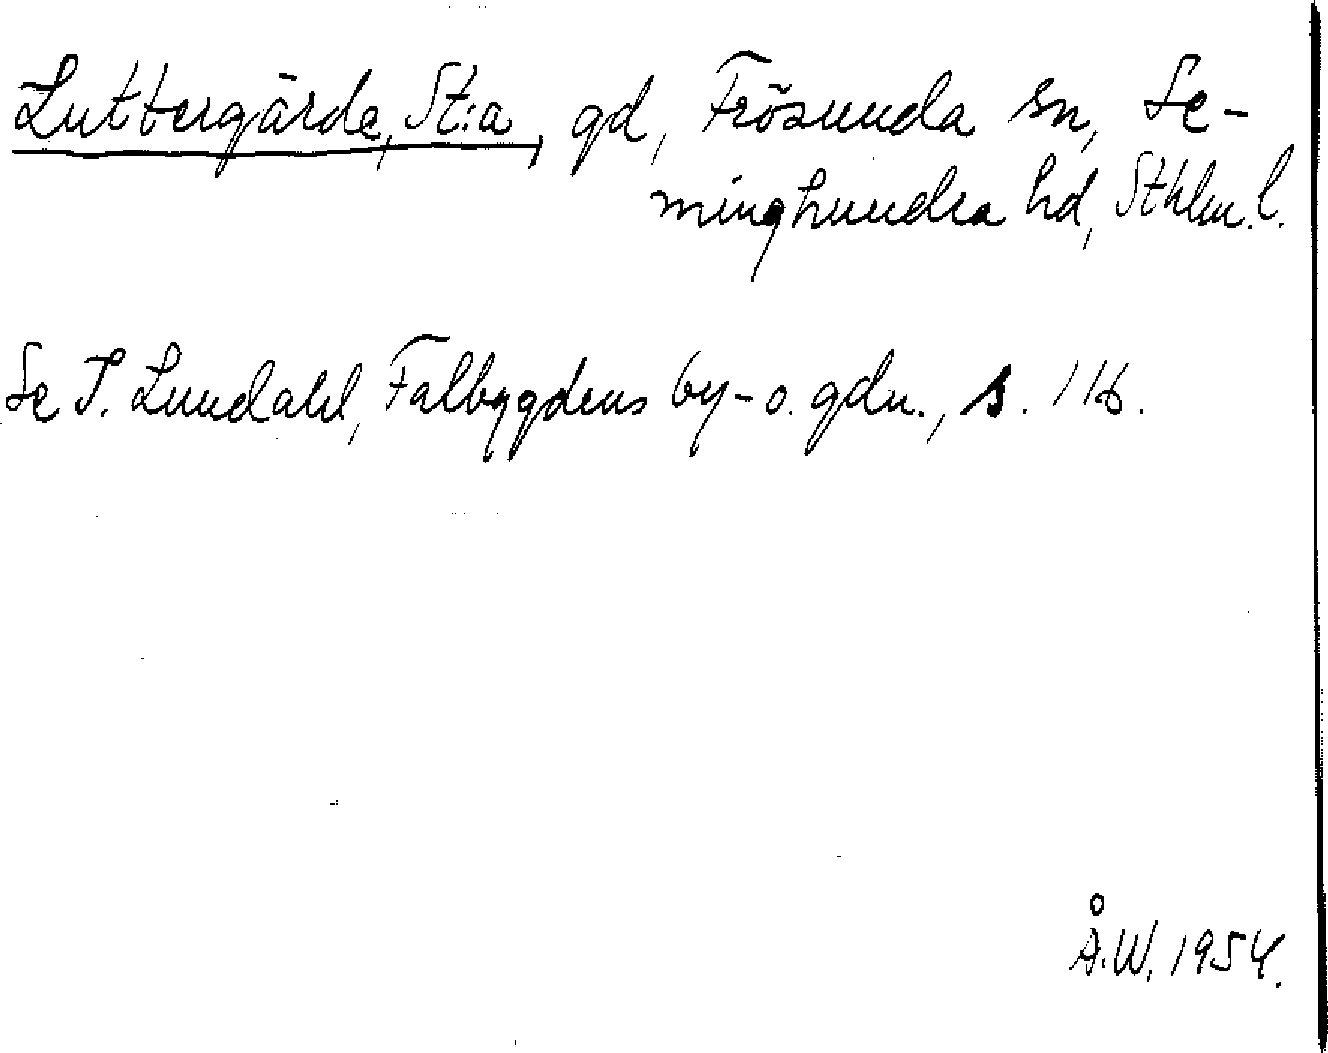 Luttergärde, St:a, gd, Frösunda sn, Se-
minghundra hd, Sthlm. l.
Se I. Lundahl, Falbygdens by- o. gdn., s. 116.
Å.W. 1954.